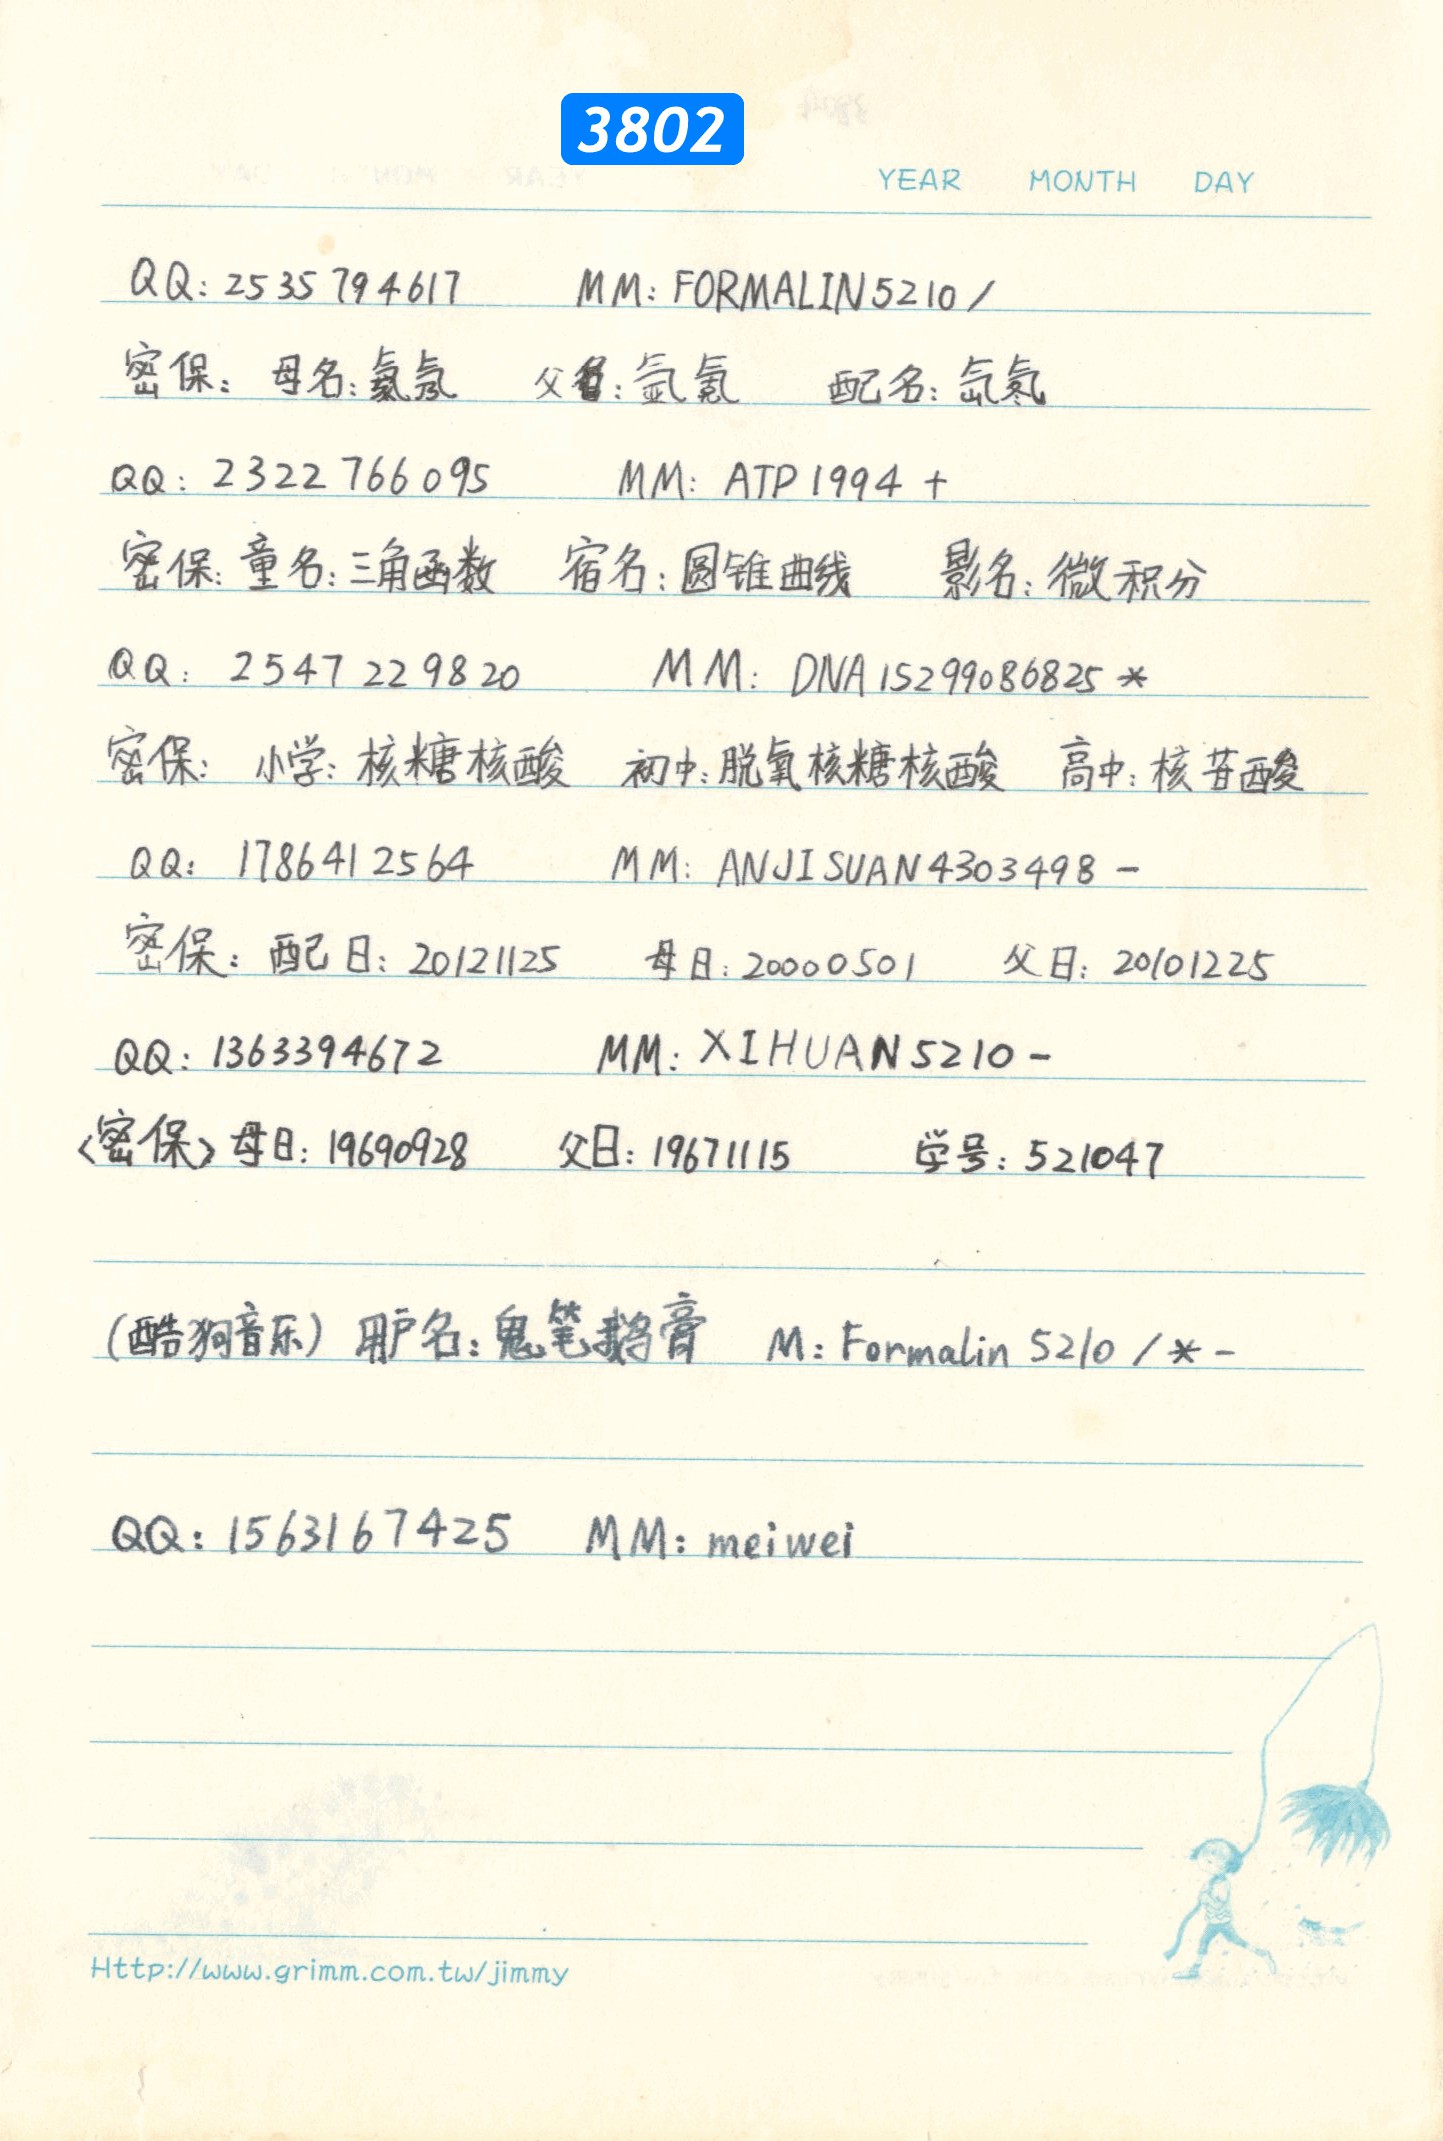 3802
YEAR MONTH DAY
QQ: 2535794617 MM: FORMALIN5210/
密保: 母名:氯氖 父名:氩氪 配名:氙氡
QQ: 2322766095 MM: ATP1994+
密保:童名:三角函数 宿名:圆锥曲线 影名:微积分
QQ: 2547229820 MM: DNA15299086825*
密保: 小学:核糖核酸 初中:脱氧核糖核酸 高中:核苷酸
QQ: 1786412564 MM: ANJISUAN4303498-
密保: 配日: 20121125 母日: 20000501 父日: 20101225
QQ: 1363394672 MM: XIHUAN5210-
<密保> 母日: 19690928 父日: 19671115 学号: 521047
(酷狗音乐) 用户名:鬼笔鹅膏 M: Formalin 5210/*-
QQ: 1563167425 MM: meiwei
Http://www.grimm.com.tw/jimmy